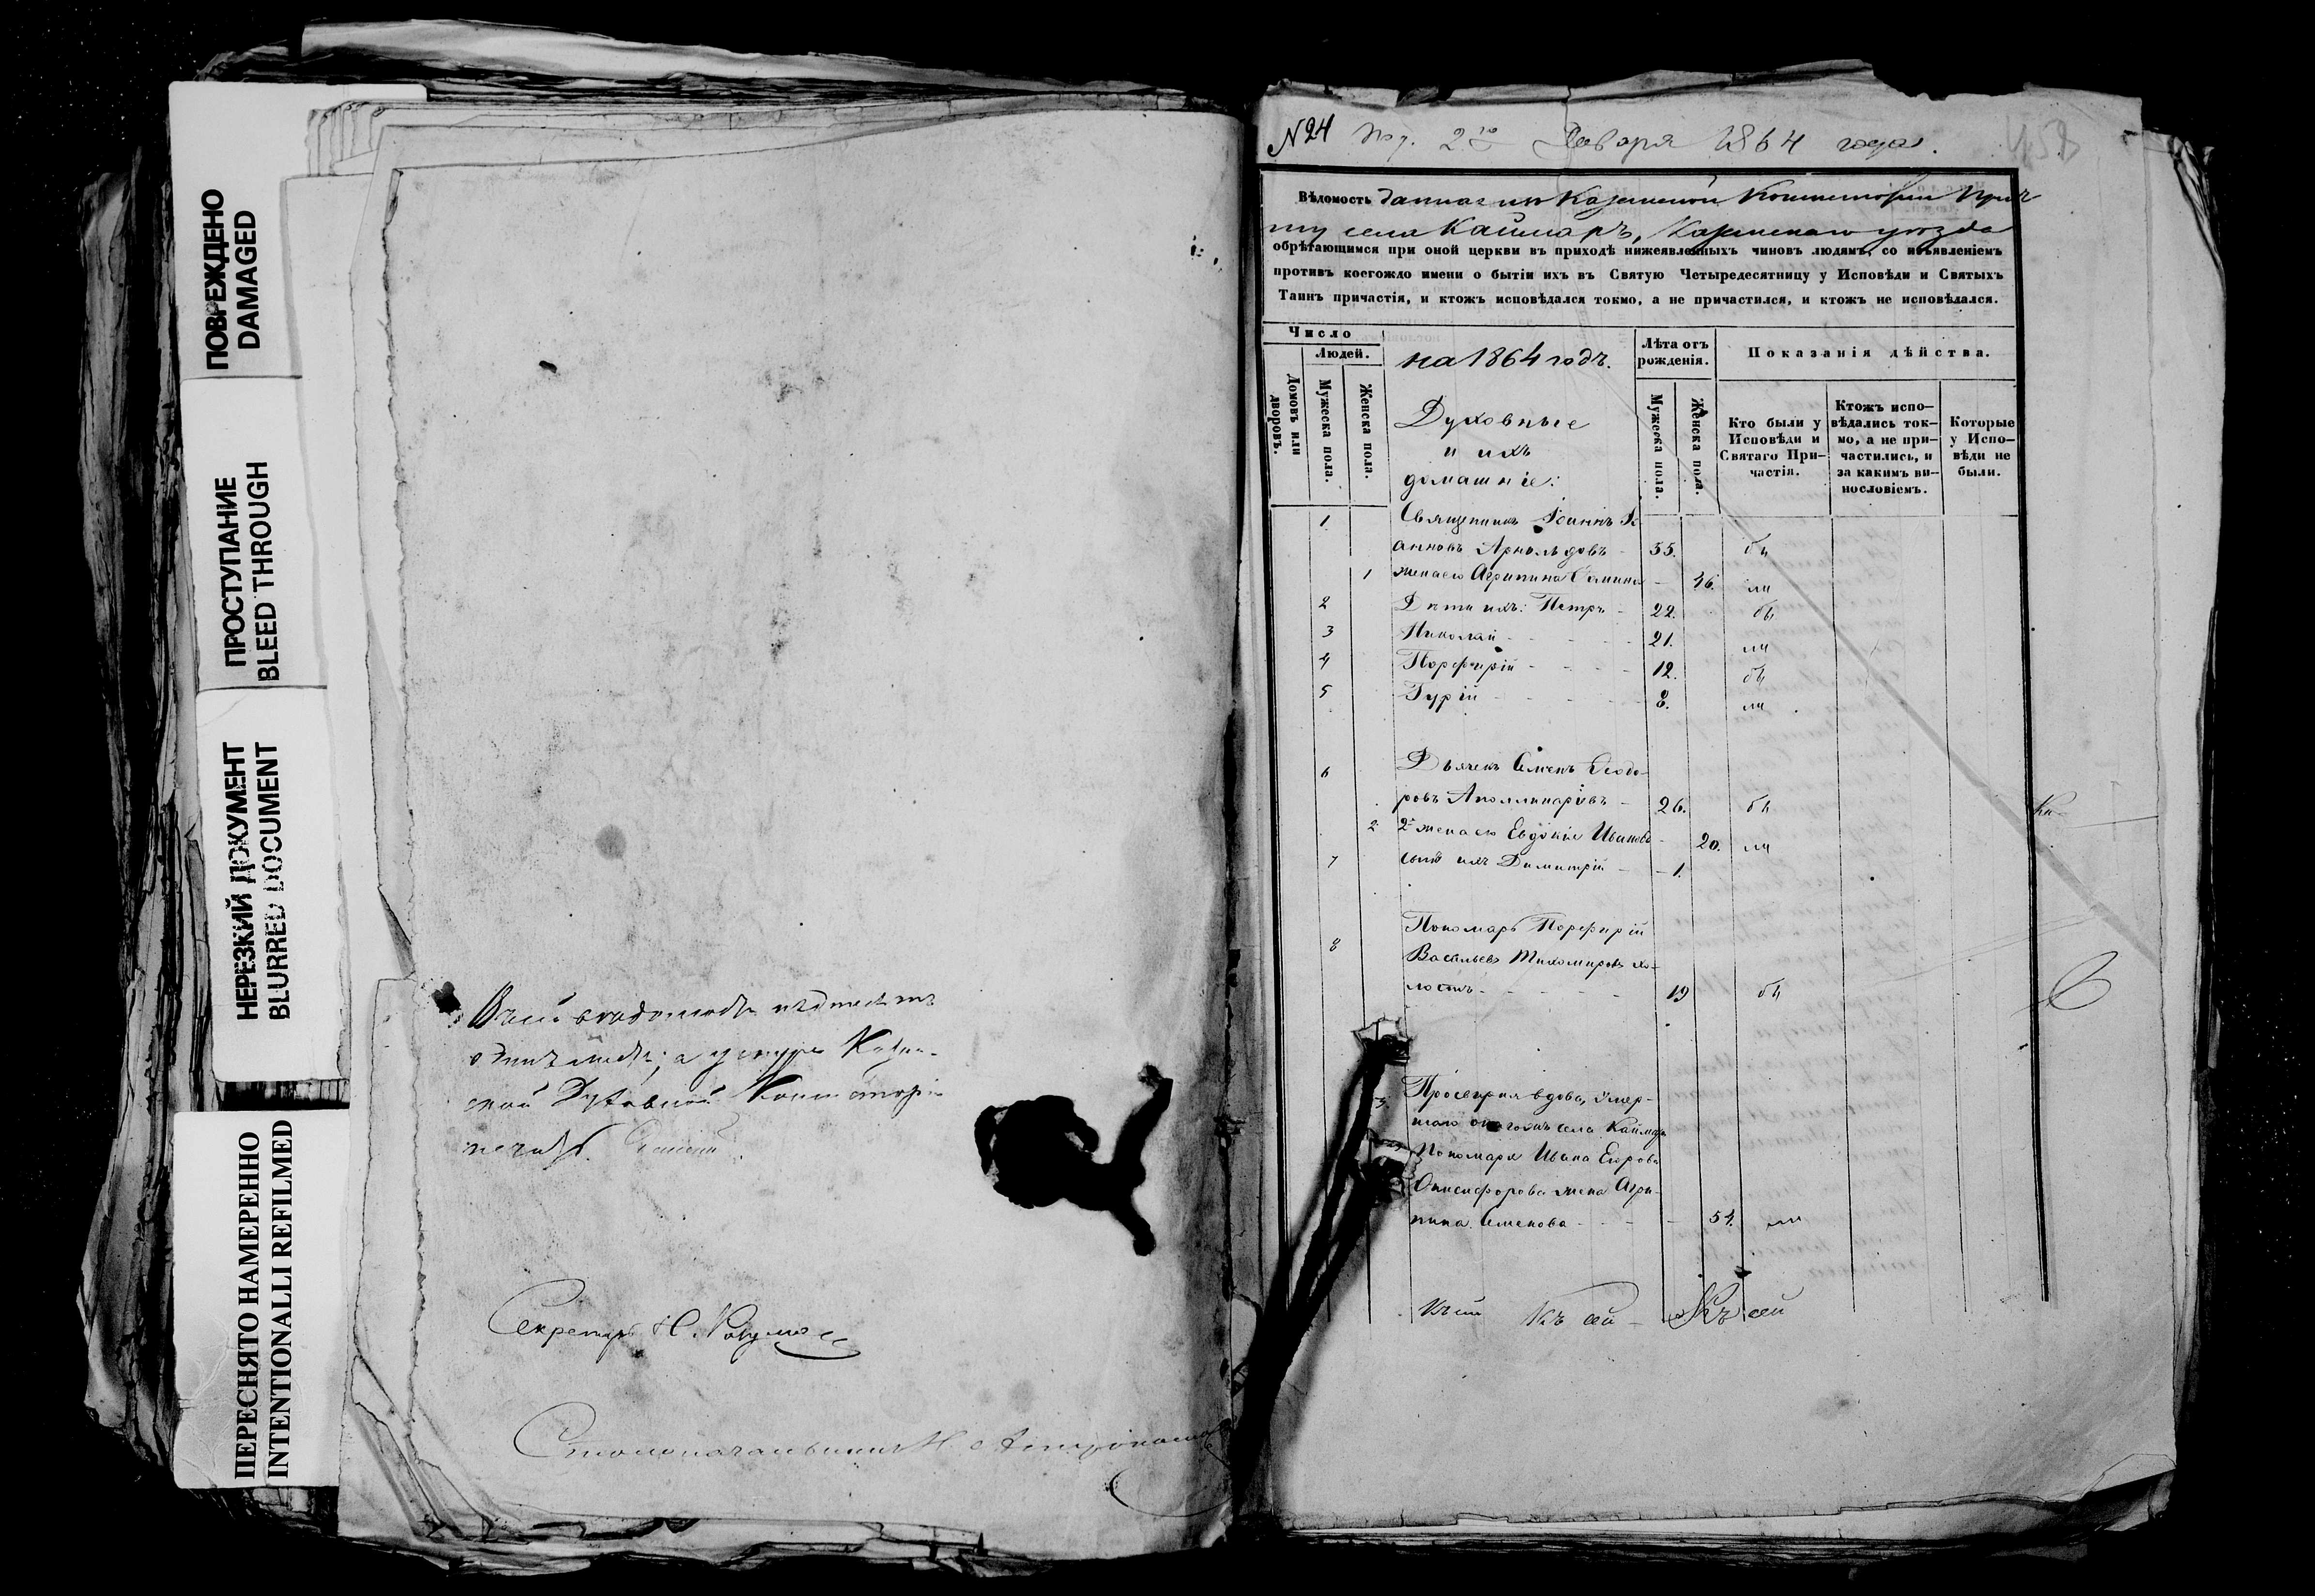 ПОВРЕЖДЕНО
DAMAGED
ПРОСТУПАНИЕ
BLEED THROUGH
НЕРЕЗКИЙ ДОКУМЕНТ
BLURRED DOCUMENT
ПЕРЕСНЯТО НАМЕРЕННО
INTENTIONALLI REFILMED
Секретарь Н.
Столоначальникъ
№ 24 2го 1864 года.
Вѣдомость данная изъ Казанской Консисторіи Прич
ту села Каймаръ, Казанскаго уѣзда
обрѣтающимся при оной церкви въ приходѣ нижеявленныхъ чиновъ людямъ, со изъявленіемъ
противъ коегождо имени о бытіи ихъ въ Святую Четыредесятницу у Исповѣди и Святыхъ
Таинъ причастія, и ктожъ исповѣдался токмо, а не причастился, и ктожъ не исповѣдался.
Число
Людей.
Домовъ или дворовъ.
Мужеска пола.
Женска пола.
на 1864 годъ.
Духовные
и ихъ
домашніе:
Лѣта отъ рожденія.
Мужеска пола.
Женска пола.
Показанія дѣйства.
Кто были у Исповѣди и Святаго При-частія.
Ктожъ испо-вѣдались ток-мо, а не при-частились, и за какимъ ви-нословіемъ.
Которые у Испо-вѣди не были.
1 Священникъ Іоаннъ Іо
анновъ Арнольдовъ - 55. бы
1 жена его Агрипина - 46. ли
2 Дѣти ихъ: Петръ - 22. бы
3 Николай - 21. ли
4 Порфирій - 12. бы
5 Гурій - 8. ли
6 Дьячекъ Семенъ Ѳеодо-
ровъ Аполлинарьевъ - 26. бы
2 2я жена его Евдокія Иванова - 20. ли
7 сынъ ихъ Димитрій - 1.
Пономарь Порфирій
8 Васильевъ Тихомировъ хо-
лостъ - 19 бы
3. Просвирня вдова, умер-
шаго села Каймаръ
Пономаря Ивана Егорова
Онисифорова жена Агри-
пина Семенова - 54. ли
Къ сей Къ сей - Къ сей